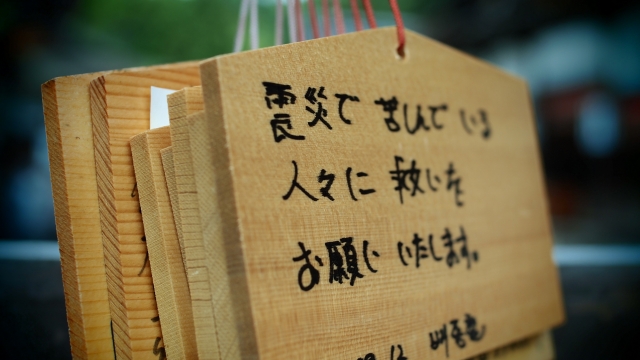 震災で 苦しんで いる
人々に 救いを
お願い いたします。